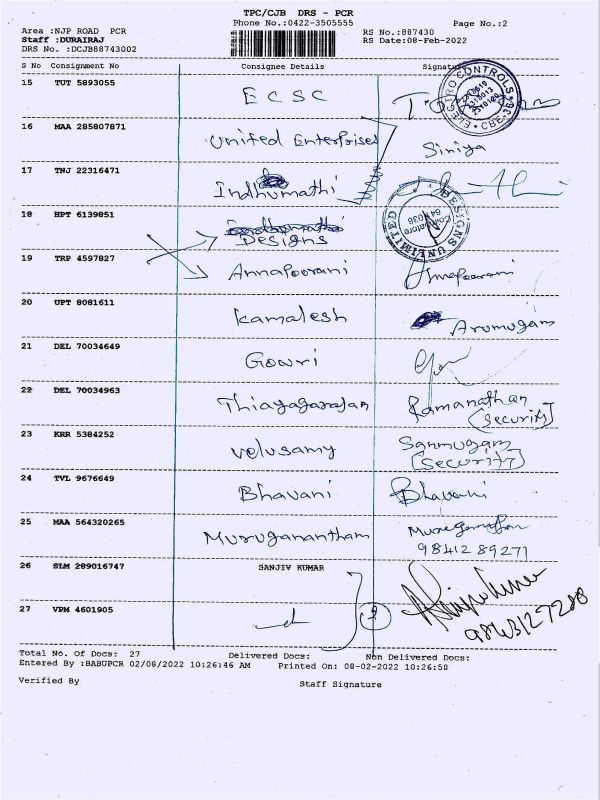 TPC/CJB DRS - PCR
Phone No.:0422-3505555
Page No.:2
Area :NJP ROAD PCR
RS No.:887430
Staff :DURAIRAJ
RS Date:08-Feb-2022
DRS No. :DCJB88743002
S No Consignment No Consignee Details Signature
15 TUT 5893055 ECSC
ELECTRO CONTROLS * CBE-36 *
16 MAA 285807871 United Enterprises Siniya
17 TNJ 22316471 Indhumathi
18 HPT 6139851 Designs
DESIGNS UNLIMITED Coimbatore 641036
19 TRP 4597827 Annapoorani Annapoorani
20 UPT 8081611 Kamalesh Arumugam
21 DEL 70034649 Gowri
22 DEL 70034963 Thiayagarajan Ramanathan
(Security)
23 KRR 5384252 Velusamy Sanmugam
(Security)
24 TVL 9676649 Bhavani Bhavani
25 MAA 564320265 Muruganantham
98412 89271
26 SLM 289016747 SANJIV KUMAR
27 VPM 4601905 2
9843127288
Total No. Of Docs: 27 Delivered Docs: Non Delivered Docs:
Entered By :BABUPCR 02/08/2022 10:26:46 AM Printed On: 08-02-2022 10:26:50
Verified By Staff Signature